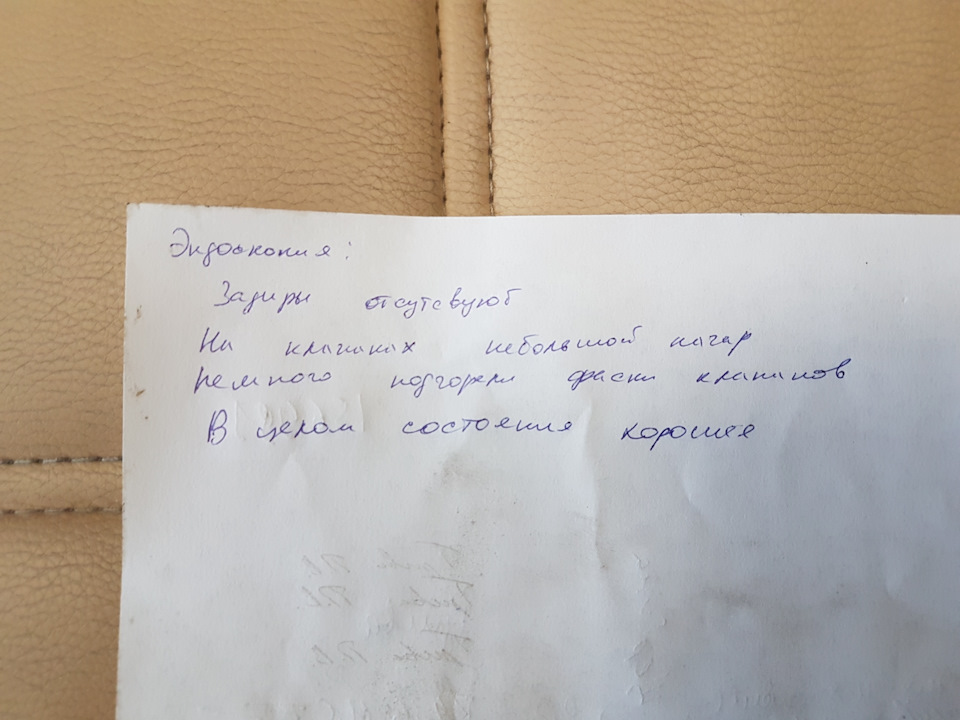 Эндоскопия:
Задиры отсутсвуют
На клапанах небольшой нагар
немного подгорели фаски клапанов
В целом состояния хорошее